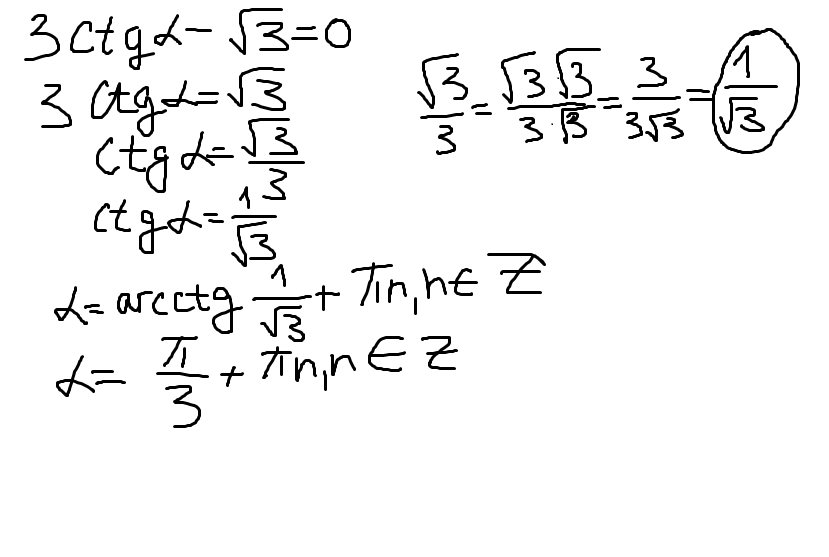 3 ctg α − √3 = 0
3 ctg α = √3
ctg α = √3/3
ctg α = 1/√3
α = arcctg 1/√3 + πn, n ∈ Z
α = π/3 + πn, n ∈ Z
√3/3 = √3 √3/3·√3 = 3/3√3 = 1/√3